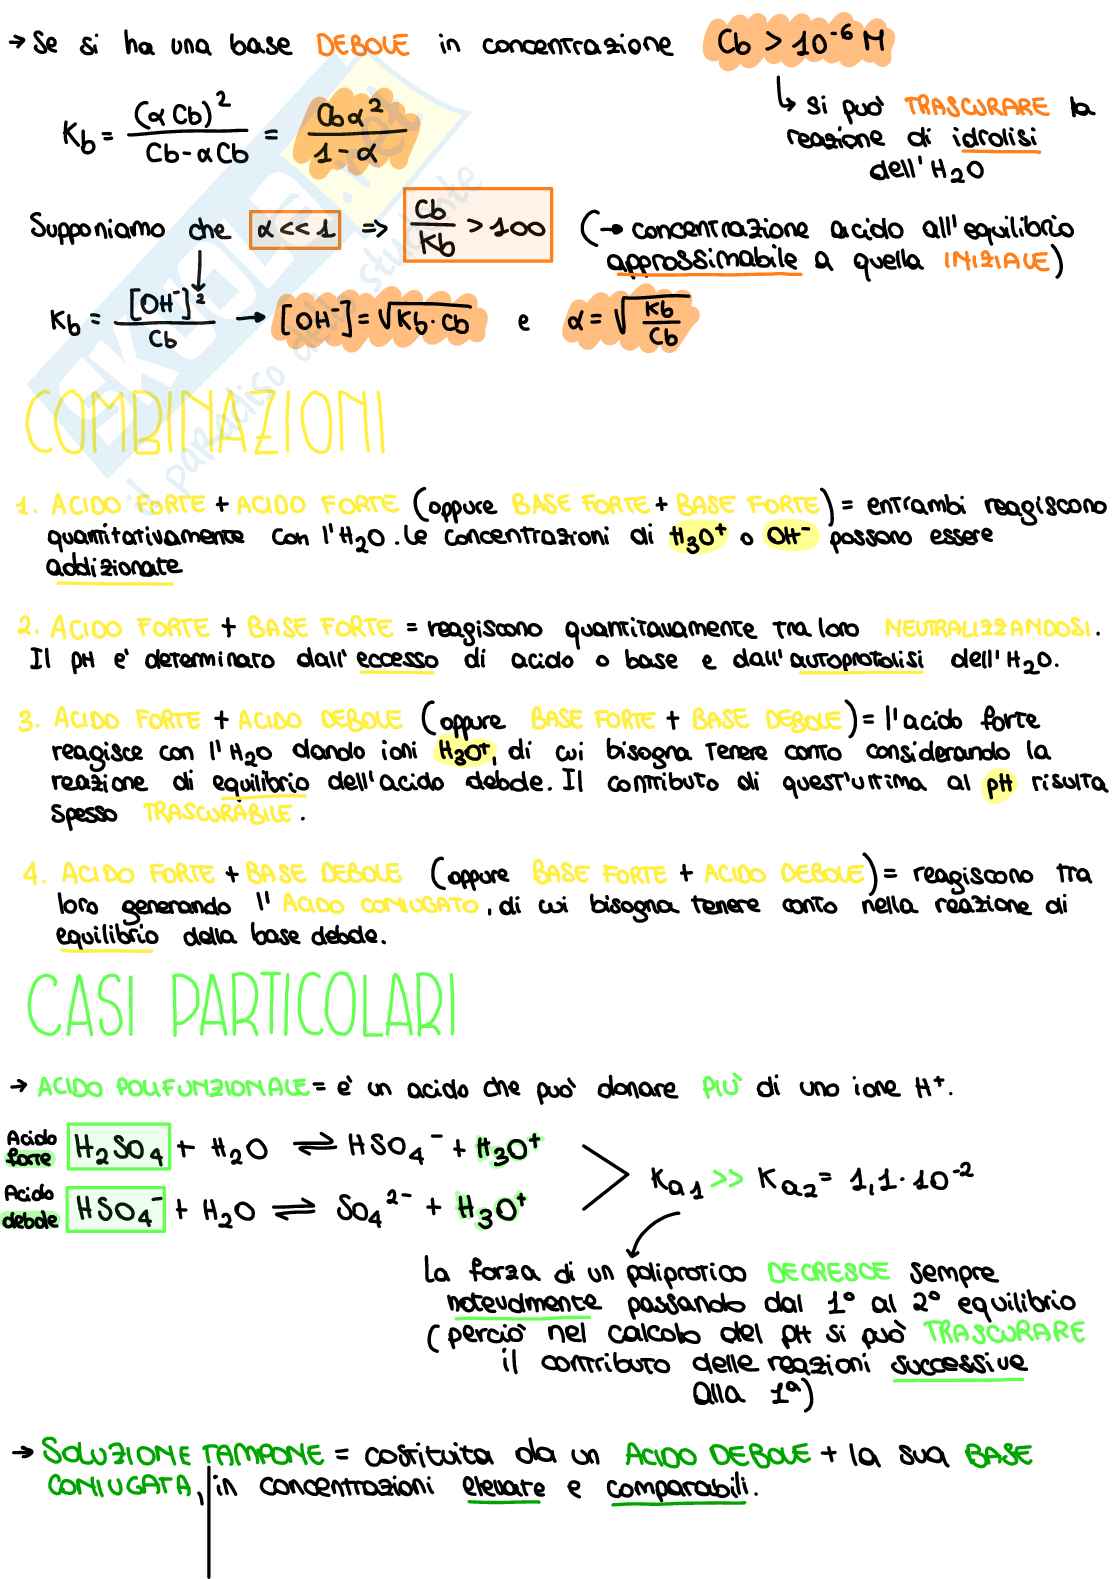 → Se si ha una base DEBOLE in concentrazione Cb > 10⁻⁶ M
↳ si può TRASCURARE la
reazione di idrolisi
dell'H₂O
Kb = (αCb)² / Cb-αCb = Cbα² / 1-α
Supponiamo che α<<1 => Cb/Kb > 100 (→ concentrazione acido all'equilibrio
approssimabile a quella INIZIALE)
Kb = [OH⁻]² / Cb → [OH⁻] = √Kb·Cb e α = √Kb/Cb
SKUOLA.net
il paradiso dello studente
COMBINAZIONI
1. ACIDO FORTE + ACIDO FORTE (oppure BASE FORTE + BASE FORTE) = entrambi reagiscono
quantitativamente con l'H₂O. Le concentrazioni di H₃O⁺ o OH⁻ possono essere
addizionate
2. ACIDO FORTE + BASE FORTE = reagiscono quantitativamente tra loro NEUTRALIZZANDOSI.
Il pH e' determinato dall'eccesso di acido o base e dall'autoprotolisi dell'H₂O.
3. ACIDO FORTE + ACIDO DEBOLE (oppure BASE FORTE + BASE DEBOLE) = l'acido forte
reagisce con l'H₂O dando ioni H₃O⁺, di cui bisogna tenere conto considerando la
reazione di equilibrio dell'acido debole. Il contributo di quest'ultima al pH risulta
spesso TRASCURABILE.
4. ACIDO FORTE + BASE DEBOLE (oppure BASE FORTE + ACIDO DEBOLE) = reagiscono tra
loro generando l'ACIDO CONIUGATO, di cui bisogna tenere conto nella reazione di
equilibrio della base debole.
CASI PARTICOLARI
→ ACIDO POLIFUNZIONALE = e' un acido che può donare PIU' di uno ione H⁺.
Acido forte H₂SO₄ + H₂O ⇌ HSO₄⁻ + H₃O⁺
Acido debole HSO₄⁻ + H₂O ⇌ SO₄²⁻ + H₃O⁺
Ka1 >> Ka2 = 1,1·10⁻²
La forza di un poliprotico DECRESCE sempre
notevolmente passando dal 1° al 2° equilibrio
(perciò nel calcolo del pH si può TRASCURARE
il contributo delle reazioni successive
alla 1ª)
→ SOLUZIONE TAMPONE = costituita da un ACIDO DEBOLE + la sua BASE
CONIUGATA, in concentrazioni elevate e comparabili.